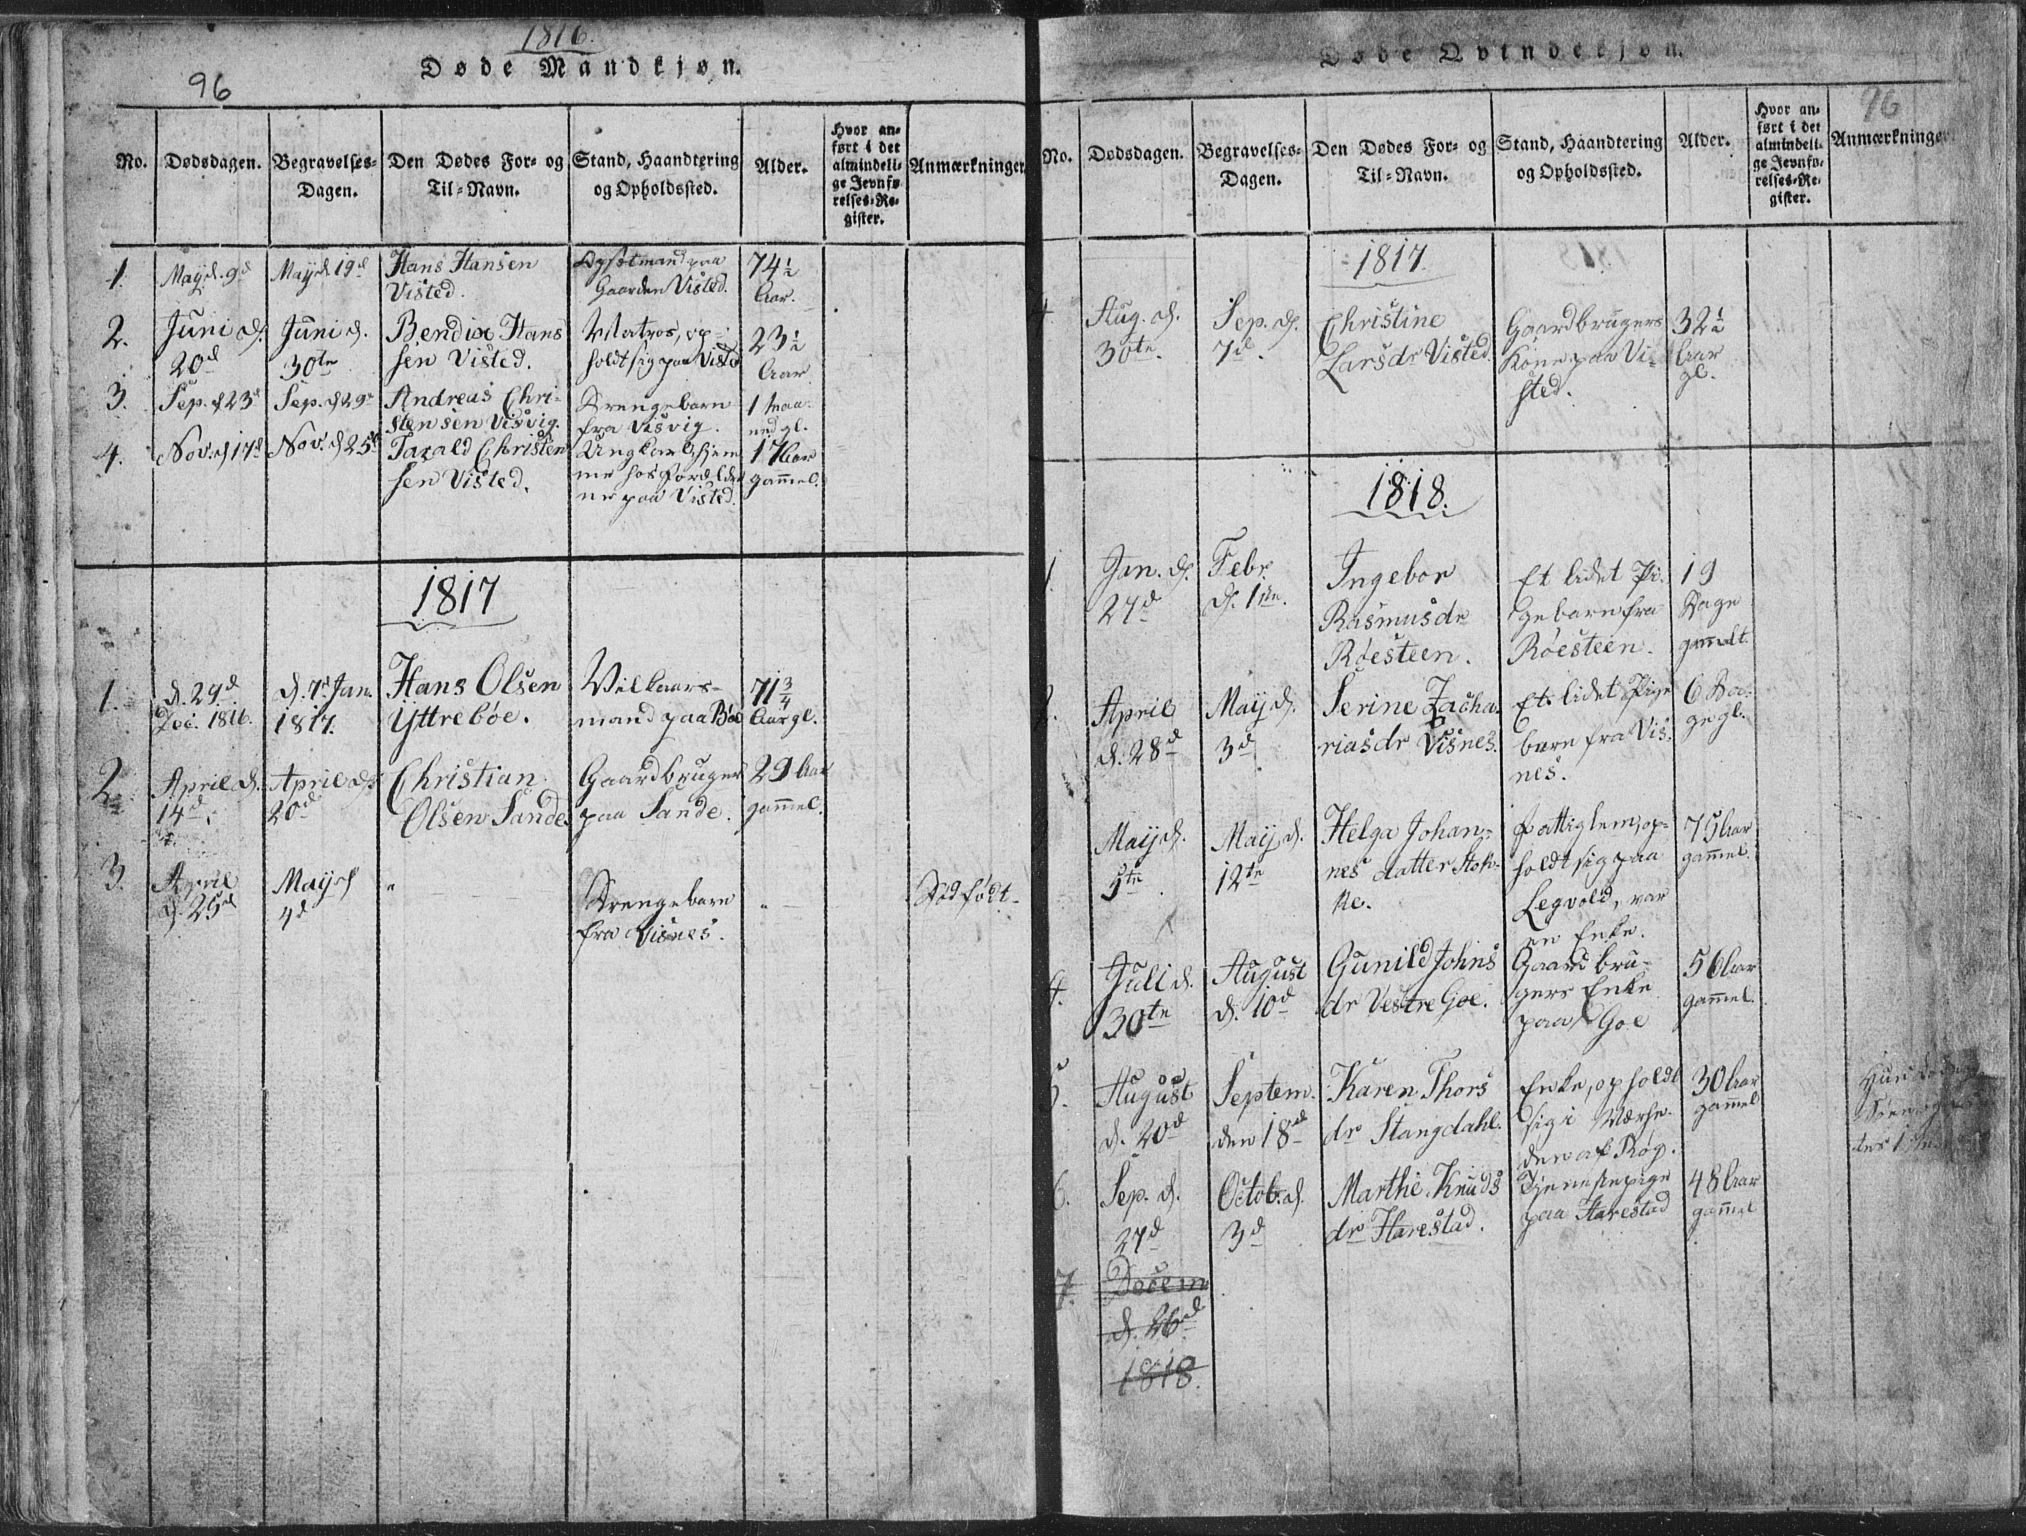 1816.
Døde Mandkjøn.
96
No.
Dødsdagen.
Begravelses-
Dagen.
Den Dødes For- og
Til-Navn.
Stand, Haandtering
og Opholdssted.
Alder.
Hvor an-
ført i det
almindeli-
ge Jevnfø-
relses-Re-
gister.
Anmærkninger
1.
May d. 9d
May d. 19d
Hans Hansen
Visted.
mand paa
Gaarden Visted.
74½
Aar.
2.
Juni d.
20d
Juni d.
30te
Bendix Hans
sen Visted.
Matros, op-
holdt sig paa Visted
23½
Aar
3.
Sep. d 23d
Sep. d 29d
Andreas Chri-
stensen Visvig.
Drengebarn
fra Visvig.
1 Maa-
ned gl.
4.
Nov. d 17d
Nov. d 25d
Tarald Christen
sen Visted.
Ungkarl hjem
me hos Foreldre
ne paa Visted.
17 Aar
gammel.
1817
1.
d. 29d
Dec. 1816.
d. 7d Jan.
1817.
Hans Olsen
Yttrebøe.
Vilkaars-
mand paa Bøe
71¾
Aar gl.
2.
April d.
14d
April d.
20d
Christian
Olsen Sande.
Gaardbruger
paa Sande.
29 Aar
gammel.
3.
April
d. 25d
May d
4d
"
Drengebarn
fra Visnes.
"
Dødfødt
Døde Qvindekjøn.
96
No.
Dødsdagen.
Begravelses-
Dagen.
Den Dødes For- og
Til-Navn.
Stand, Haandtering
og Opholdssted.
Alder.
Hvor an-
ført i det
almindeli-
ge Jevnfø-
relses-Re-
gister.
Anmærkninger
1817.
Aug. d.
30te.
Sep. d.
7d.
Christine
Larsdr Visted.
Gaardbrugers
Kone paa Vi-
sted.
32½
Aar
gl.
1818.
1.
Jan. d.
27d
Febr.
d. 1ste.
Ingebor
Rasmusdr
Røesteen.
Et lidet Pi-
gebarn fra
Røesteen.
19
Dage
gammelt.
April
d. 28d
May d.
3d
Serine Zacha-
riasdr Visnes.
Et lidet Pige
barn fra Vis-
nes.
6 Da-
ge gl.
May d.
5te
May d.
12te
Helga Johan-
nes datter Stok-
ke.
Fattiglem, op-
holdt sig paa
Legvold, var
en Enke.
75 Aar
gammel.
4.
Juli d.
30te
August
d. 10d
Gunild Johns
dr Vestre Goe.
Gaardbru-
gers Enke
paa Goe
56 Aar
gammel.
5.
August
d. 20d
Septem.
den 18d
Karen Thors
dr Stangdahl.
Enke, opholdt
sig i Værhe-
den af Røg.
30 Aar
gammel
Hun
6.
Sep. d.
27d
Octob. d.
3d
Marthe Knuds
dr Harestad.
Tjenestepige
paa Harestad
48 Aar
gammel
7.
Decem
d. 26d
1818.